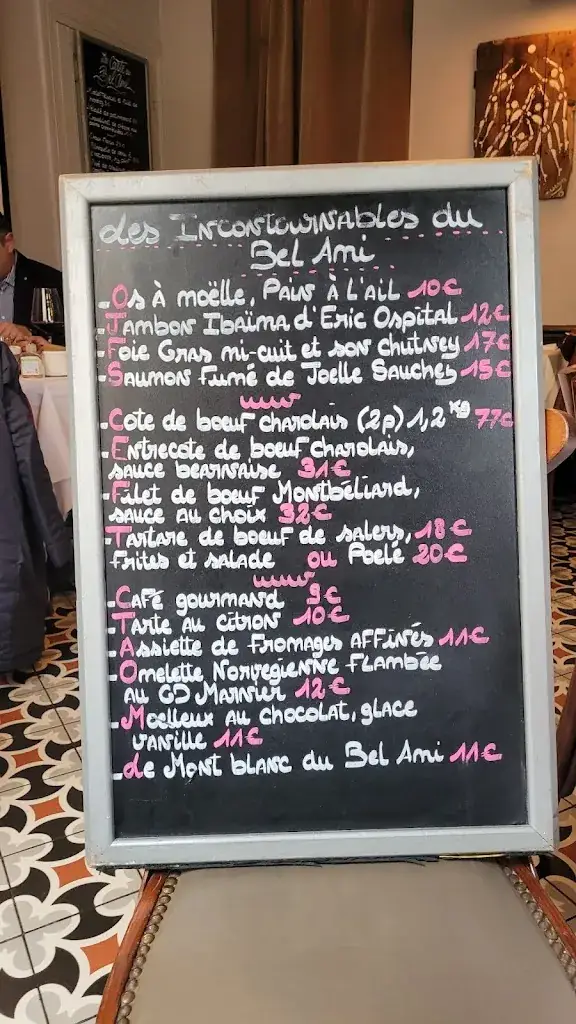 des Incontournables du
Bel Ami
- Os à moëlle, Pain à l'ail 10€
- Jambon Ibaïma d'Eric Ospital 12€
- Foie Gras mi-cuit et son chutney 17€
- Saumon fumé de Joelle Sauches 15€
- Cote de boeuf charolais (2p) 1,2 kg 77€
- Entrecote de boeuf charolais,
sauce bearnaise 31€
- Filet de boeuf Montbéliard,
sauce au choix 32€
- Tartare de boeuf de salers, 18€
frites et salade ou Poelé 20€
- Café gourmand 9€
- Tarte au citron 10€
- Assiette de fromages affinés 11€
- Omelette Norvegienne flambée
au GD Marnier 12€
- Moelleux au chocolat, glace
vanille 11€
- de Mont blanc du Bel Ami 11€